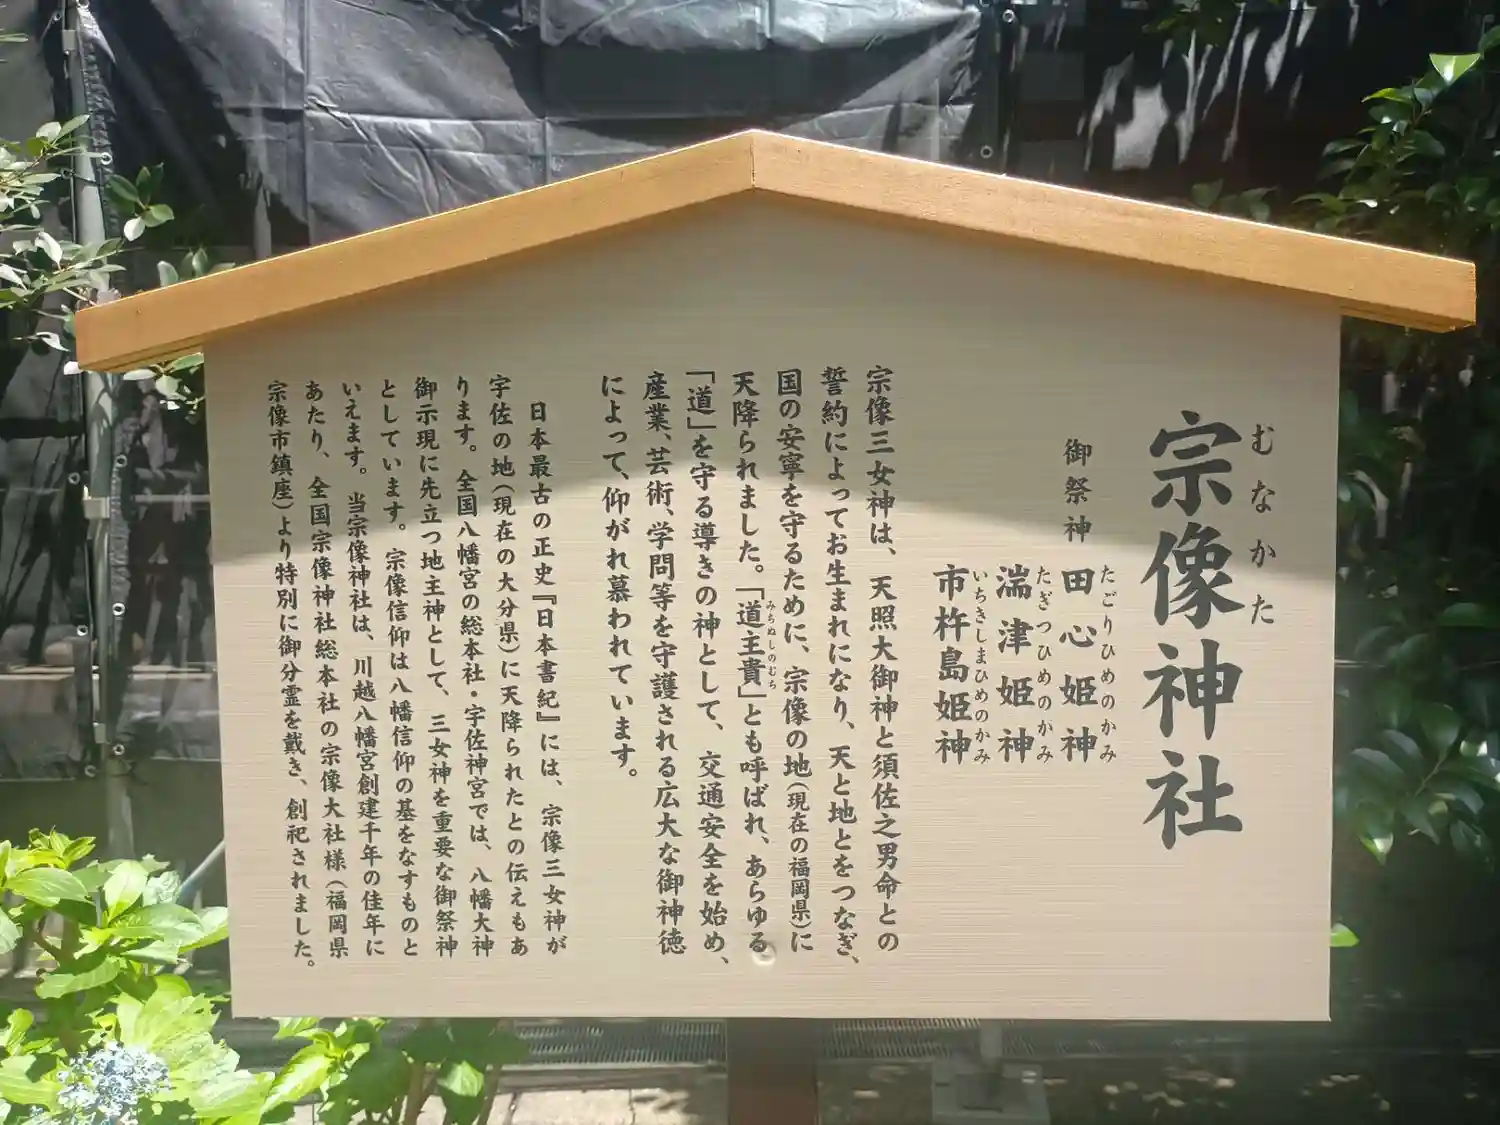 宗像神社
むなかた
御祭神 田心姫神
たごりひめのかみ
湍津姫神
たぎつひめのかみ
市杵島姫神
いちきしまひめのかみ
宗像三女神は、天照大御神と須佐之男命との
誓約によってお生まれになり、天と地とをつなぎ、
国の安寧を守るために、宗像の地(現在の福岡県)に
天降られました。「道主貴」とも呼ばれ、あらゆる
みちぬしのむち
「道」を守る導きの神として、交通安全を始め、
産業、芸術、学問等を守護される広大な御神徳
によって、仰がれ慕われています。
日本最古の正史『日本書紀』には、宗像三女神が
宇佐の地(現在の大分県)に天降られたとの伝えもあ
ります。全国八幡宮の総本社・宇佐神宮では、八幡大神
御示現に先立つ地主神として、三女神を重要な御祭神
としています。宗像信仰は八幡信仰の基をなすものと
いえます。当宗像神社は、川越八幡宮創建千年の佳年に
あたり、全国宗像神社総本社の宗像大社様(福岡県
宗像市鎮座)より特別に御分霊を戴き、創祀されました。